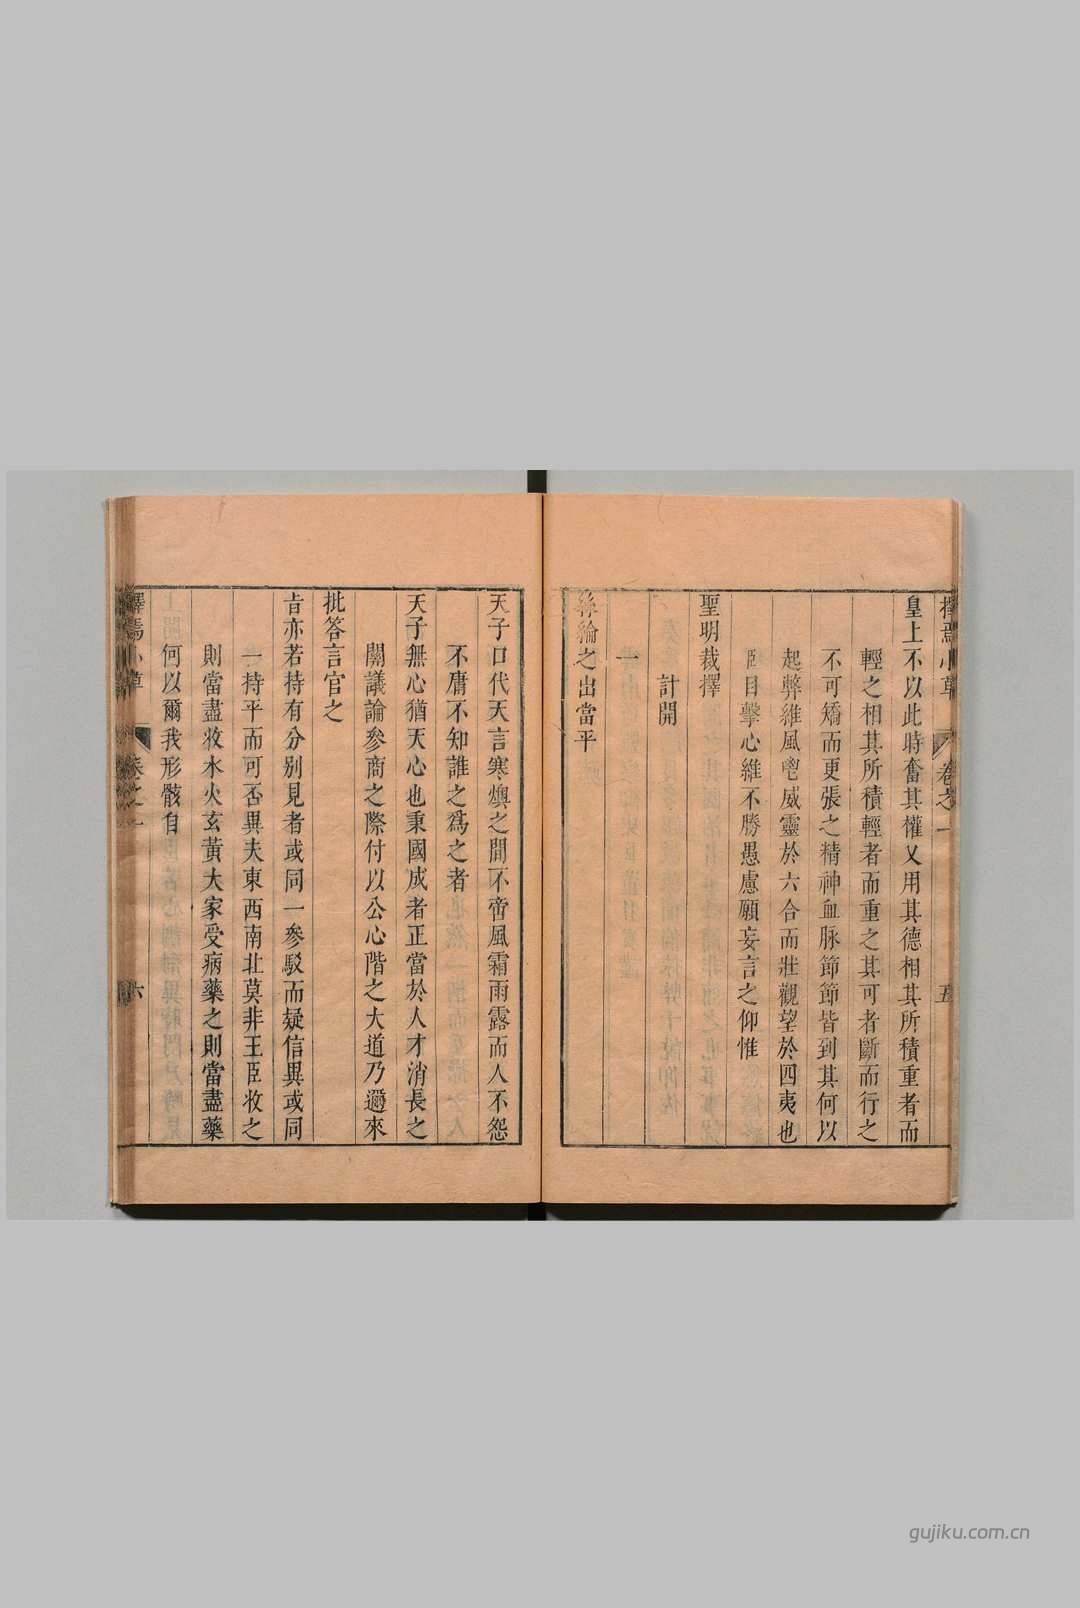 皇上不以此時奮其權又用其德相其所積重者而
輕之相其所積輕者而重之其可者斷而行之
不可矯而更張之精神血脉節節皆到其何以
起弊維風鬯威靈於六合而壯觀望於四夷也
臣目擊心維不勝愚慮願妄言之仰惟
聖明裁擇
計開
一
絲綸之出當平
天子口代天言寒燠之間不啻風霜雨露而人不怨
不庸不知誰之為之者
天子無心猶天心也秉國成者正當於人才消長之
關議論參商之際付以公心階之大道乃邇來
批答言官之
㫖亦若持有分別見者或同一參駁而疑信異或同
一持平而可否異夫東西南北莫非王臣收之
則當盡收水火玄黃大家受病藥之則當盡藥
何以爾我形骸自
卷之一
五
六
gujiku.com.cn